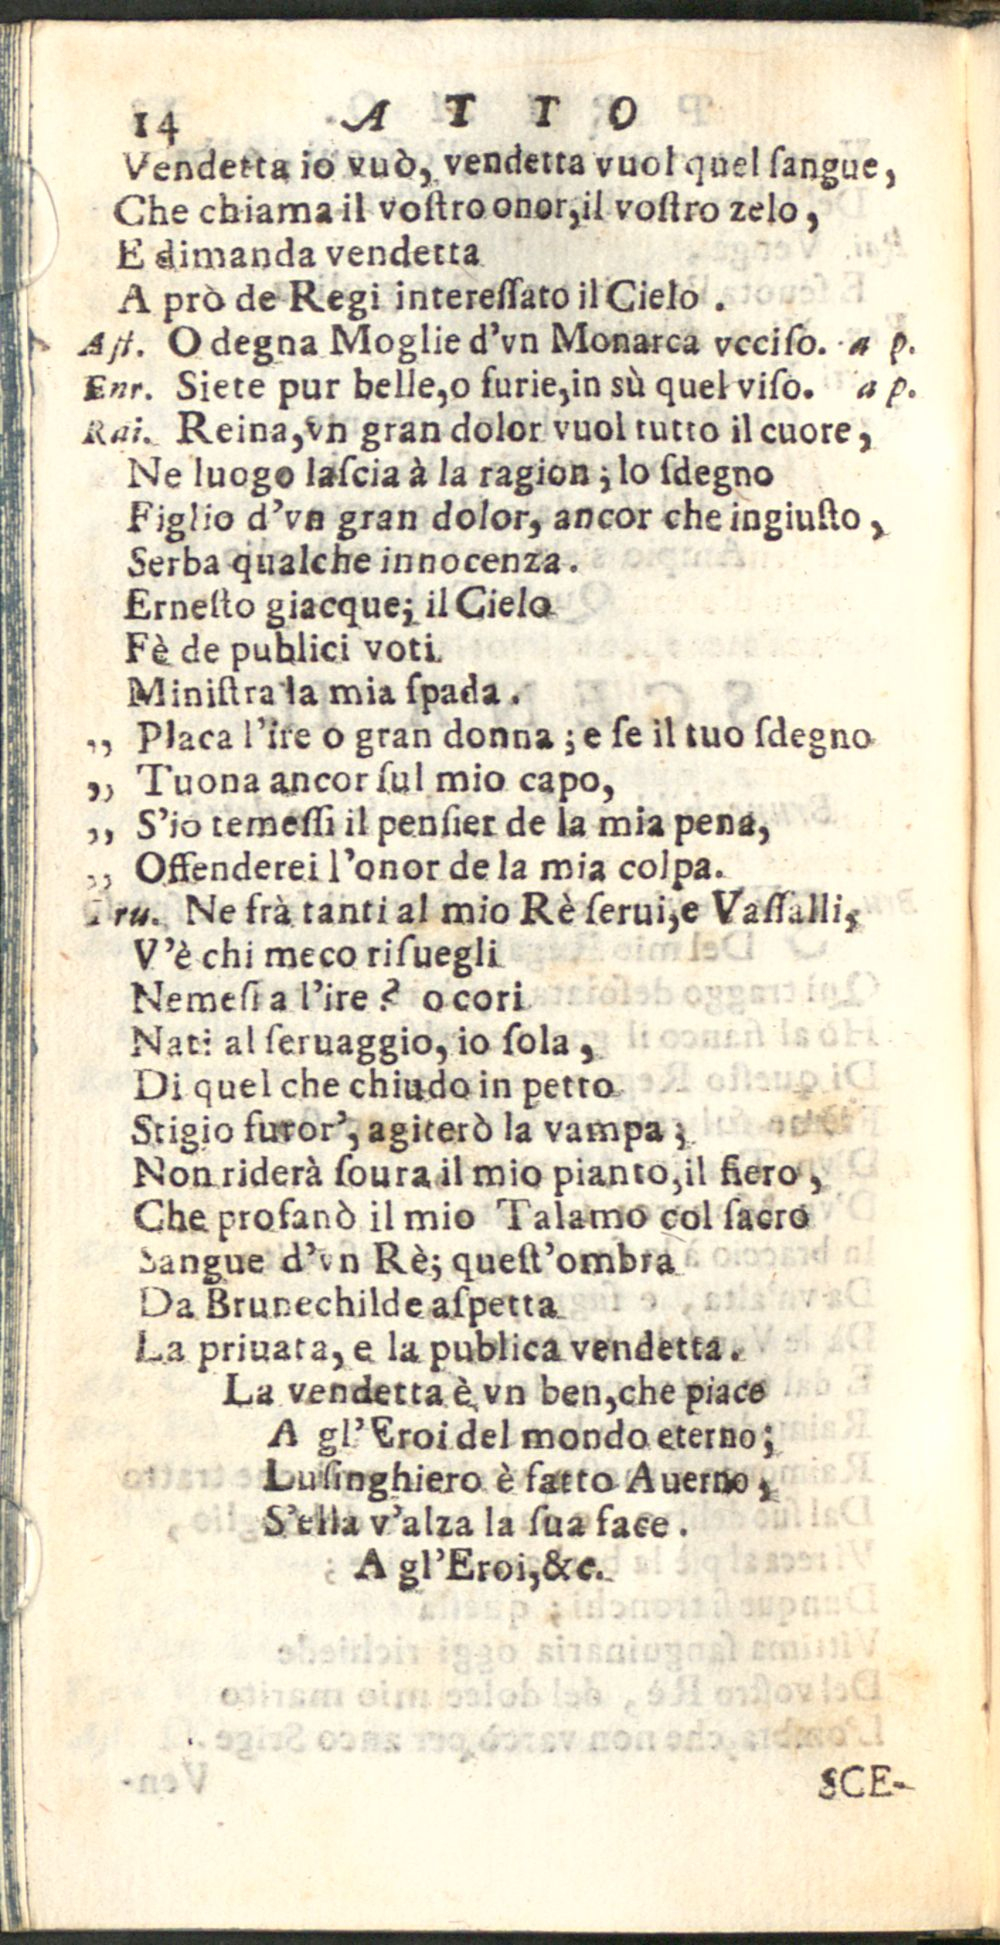 14 ATTO
Vendetta io vuò, vendetta vuol quel ſangue,
Che chiama il voſtro onor, il voſtro zelo,
E dimanda vendetta
A prò de Regi intereſſato il Cielo.
Aſt. O degna Moglie d'vn Monarca vcciſo. a p.
Enr. Siete pur belle, o furie, in sù quel viſo. a p.
Rai. Reina, vn gran dolor vuol tutto il cuore,
Ne luogo laſcia à la ragion; lo ſdegno
Figlio d'vn gran dolor, ancor che ingiuſto,
Serba qualche innocenza.
Erneſto giacque; il Cielo
Fè de publici voti
Miniſtra la mia ſpada.
„ Placa l'ire o gran donna; e ſe il tuo ſdegno
„ Tuona ancor ſul mio capo,
„ S'io temeſſi il penſier de la mia pena,
„ Offenderei l'onor de la mia colpa.
Bru. Ne frà tanti al mio Rè ſerui, e Vaſſalli,
V'è chi meco riſuegli
Nemeſi a l'ire? o cori
Nati al ſeruaggio, io ſola,
Di quel che chiudo in petto
Stigio furor', agiterò la vampa;
Non riderà ſoura il mio pianto, il fiero,
Che profanò il mio Talamo col ſacro
Sangue d'vn Rè; queſt'ombra
Da Brunechilde aſpetta
La priuata, e la publica vendetta.
La vendetta è vn ben, che piace
A gl'Eroi del mondo eterno;
Luſinghiero è fatto Auerno,
S'ella v'alza la ſua face.
A gl'Eroi, &c.
SCE-